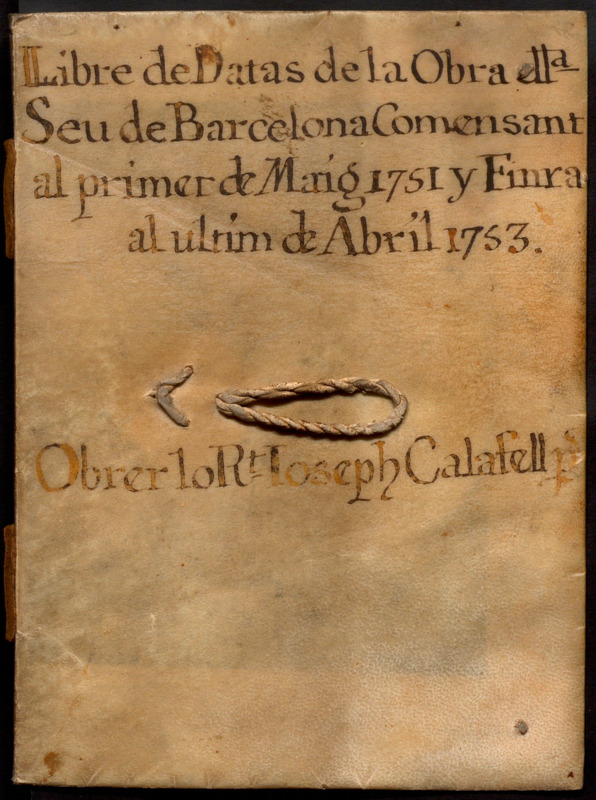 LLibre de Datas de la Obra dlla
Seu de Barcelona Comensant
al primer de Maig 1751 y Finra
al ultim de Abril 1753.
Obrer lo Rt. Ioseph Calafell pr̃